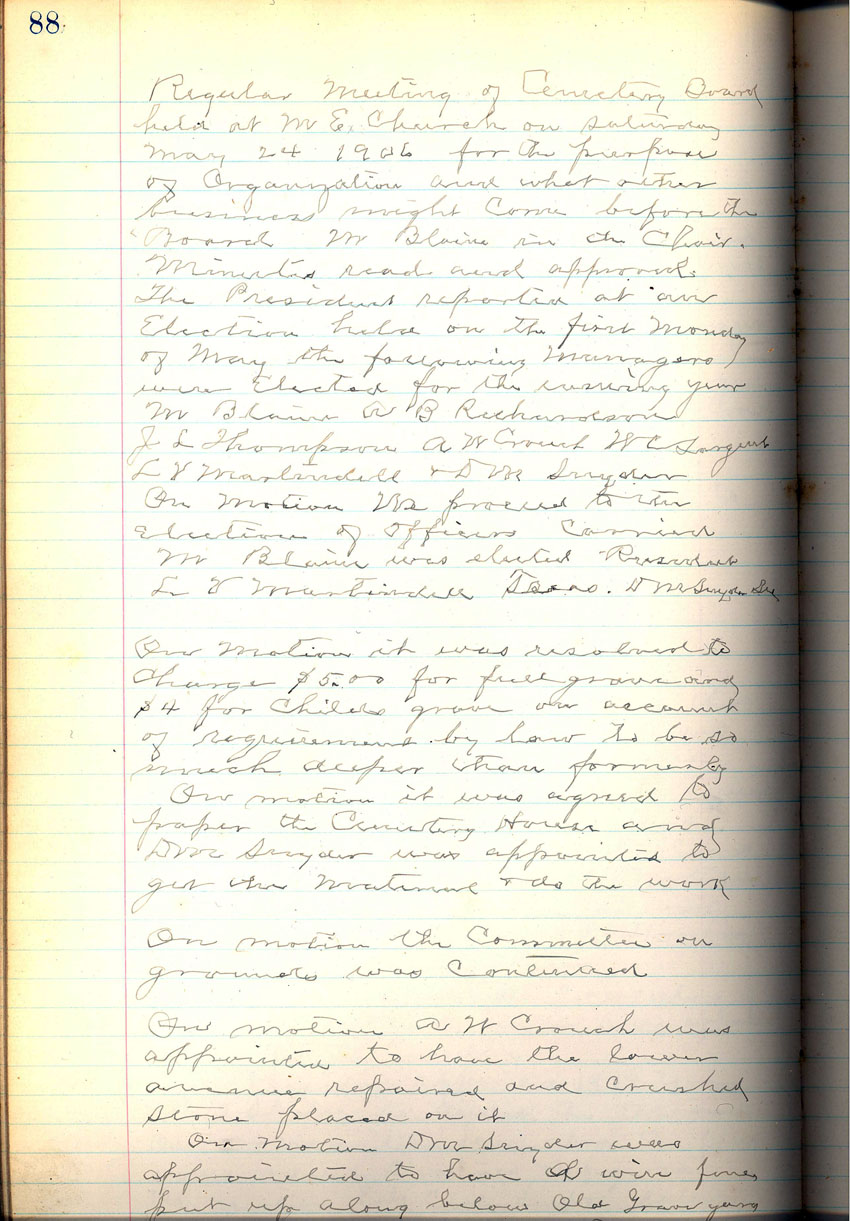 88
Regular Meeting of Cemetery Board
held at M E. Church on Saturday
May 24 1906 for the purpose
of Organization and what other
business might Come before the
Board M Blaine in the Chair.
Minutes read and approved.
The President reported at our
Election held on the first Monday
of May the following Managers
were Elected for the ensuing year
M Blaine A B Richardson
J L Thompson A W Crouch W C Sargent
L V Martindell & D M Snyder
On Motion We proceed to the
election of officers Carried
M Blaine was elected President
L V Martindell Treas. D M Snyder Sec
On Motion it was resolved to
Charge $5.00 for full grave and
$4 for Childs grave on account
of requirement by law to be so
much deeper than formerly
On motion it was agreed to
paper the Cemetery House and
D M Snyder was appointed to
get the Material & do the work
On motion the Committee on
grounds was Continued
On motion A W Crouch was
appointed to have the lower
avenue repaired and Crushed
Stone placed on it
On Motion D M Snyder was
appointed to have wire fence
put up along below Old Grave yard